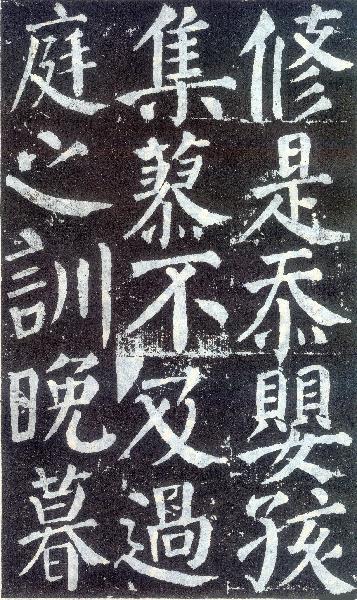 修是忝嬰孩
集蓼不及過
庭之訓晚暮